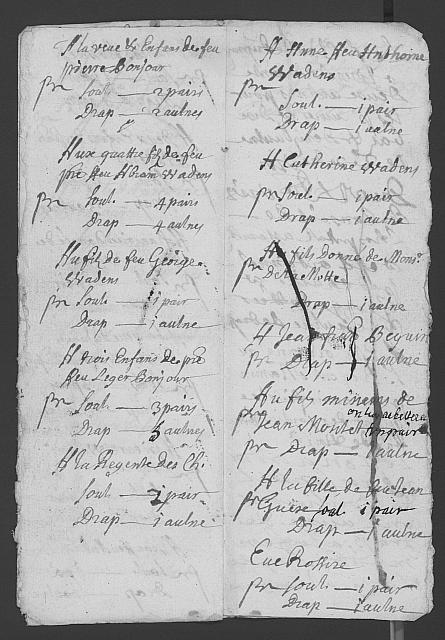 A la veuë & Enfans de feu
pierre Bonjour
pr Soul. — 2 pairs
Drap — 2 aulnes
Aux quattre fils de feu
pre feu Abram Wadens
pr Soul. — 4 pairs
Drap — 4 aulnes
Au fils de feu George
Wadens
pr Soul. — 1 pair
Drap — 1 aulne
A trois Enfans de pre
feu Leger Bonjour
pr Soul — 3 pairs
Drap 3 aulnes
A la Regente des Ch:
Soul — 2 pair
Drap — 1 aulne
A Anne feu Anthoine
Wadens
pr Soul. — 1 pair
Drap — 1 aulne
A Catherine Wadens
pr Soul. — 1 pair
Drap — 1 aulne
Au fils Donné de Monsr
pr De la Motte
Drap — 1 aulne
A Jean Beguin
pr Drap — 1 aulne
Au fils mineur de
pr Jean Montet un pair
pr Drap — 1 aulne
A la fille de feu Jean
pr Guere soul 1 pair
Drap — 1 aulne
Eve Rossire
pr Soul. — 1 pair
Drap — 1 aulne